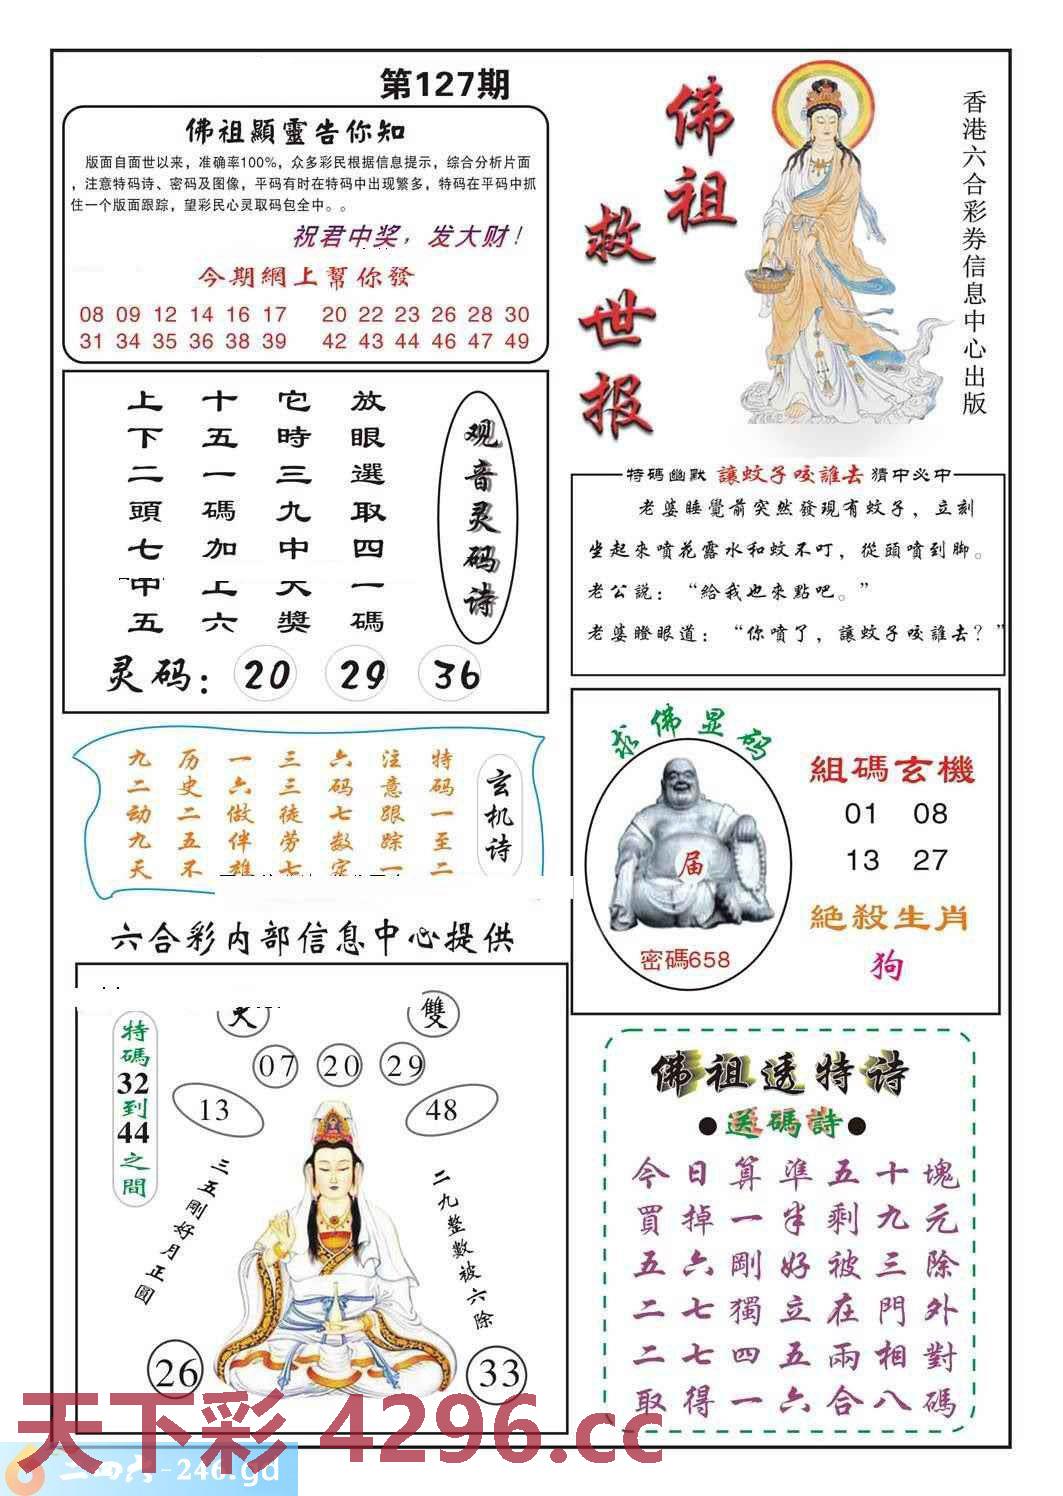 第127期
佛祖顯靈告你知
版面自面世以来，准确率100%，众多彩民根据信息提示，综合分析片面
，注意特码诗、密码及图像，平码有时在特码中出现繁多，特码在平码中抓
住一个版面跟踪，望彩民心灵取码包全中。。
祝君中奖，发大财！
今期網上幫你發
08 09 12 14 16 17 20 22 23 26 28 30
31 34 35 36 38 39 42 43 44 46 47 49
佛祖
救世报
香港六合彩券信息中心出版
观音灵码诗
放眼選取四一碼
它時三九中大獎
十五一碼加上六
上下二頭七中五
灵码：20 29 36
特碼幽默 讓蚊子咬誰去 猜中必中
老婆睡覺前突然發現有蚊子，立刻
坐起來噴花露水和蚊不叮，從頭噴到脚。
老公説：“給我也來點吧。”
老婆瞪眼道：“你噴了，讓蚊子咬誰去？”
玄机诗
特码一至二
注意跟踪一
六码七数定
三三徒劳七
一六做伴雄
历史二五不
九二动九天
求佛显码
届
密碼658
組碼玄機
01 08
13 27
絕殺生肖
狗
六合彩内部信息中心提供
特碼32到44之間
雙
07 20 29
13 48
三五剛好月正圓
二九整數被六除
26 33
佛祖透特诗
●送碼詩●
今日算準五十塊
買掉一半剩九元
五六剛好被三除
二七獨立在門外
二七四五兩相對
取得一六合八碼
天下彩 4296.cc
二四六-246.gd